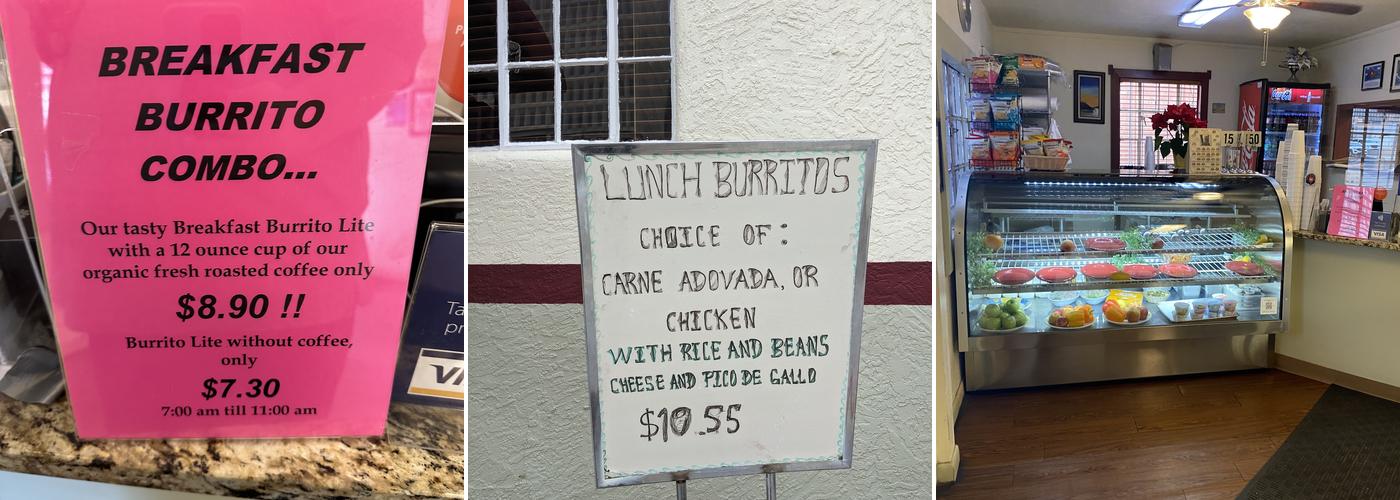 BREAKFAST
BURRITO
COMBO...
Our tasty Breakfast Burrito Lite
with a 12 ounce cup of our
organic fresh roasted coffee only
$8.90 !!
Burrito Lite without coffee,
only
$7.30
7:00 am till 11:00 am
LUNCH BURRITOS
CHOICE OF :
CARNE ADOVADA, OR
CHICKEN
WITH RICE AND BEANS
CHEESE AND PICO DE GALLO
$10.55
Coca-Cola
15
50
VISA